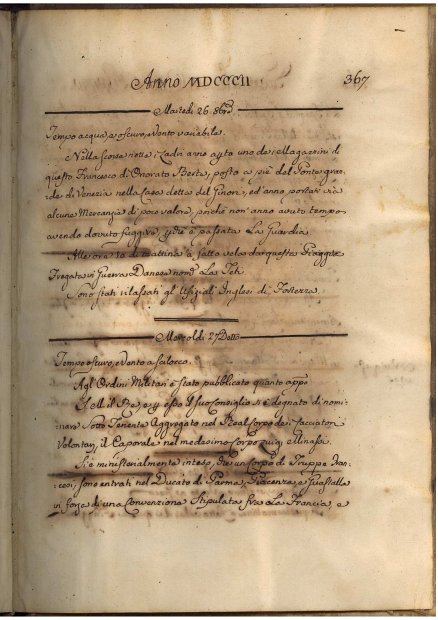 Anno MDCCCII
367
Martedi 26. 8bre
Tempo acqua, e oscuro, e Vento variabile.
Nella scorsa notte i Ladri anno apto uno dei Magazzini di
questo Francesco di Onorato Berta, posto a piè del Ponte gran-
de di Venezia nella Casa detta del Ginori, ed anno portati via
alcune Mercanzie di poco valore, poichè non anno avuto tempo
avendo dovuto fuggire, ch'è passata La Guardia.
Alle ore 10 di mattina à fatto vela da queste Piagge
Fregata in Guerra Danese nomta La Teti
Sono stati rilassati gl' Ufiziali Inglesi di Fortezza
Mercoldi 27 Detto
Tempo oscuro, e Vento a scilocco.
Agl' Ordini Militari è stato pubblicato quanto appo
S. M. il Re, e p esso il suo Consiglio si è degnato di nomi-
nare Sotto Tenente Aggregato nel Real Corpo dei Cacciatori
Volontarj, il Caporale nel medesimo Corpo Luigi Minassi.
Si è ministerialmente inteso, che un Corpo di Truppe Fran-
cesi, sono entrati nel Ducato di Parma, Piacenza, e Guastalla
in forza di una Convenzione Stipulata fra La Francia, e